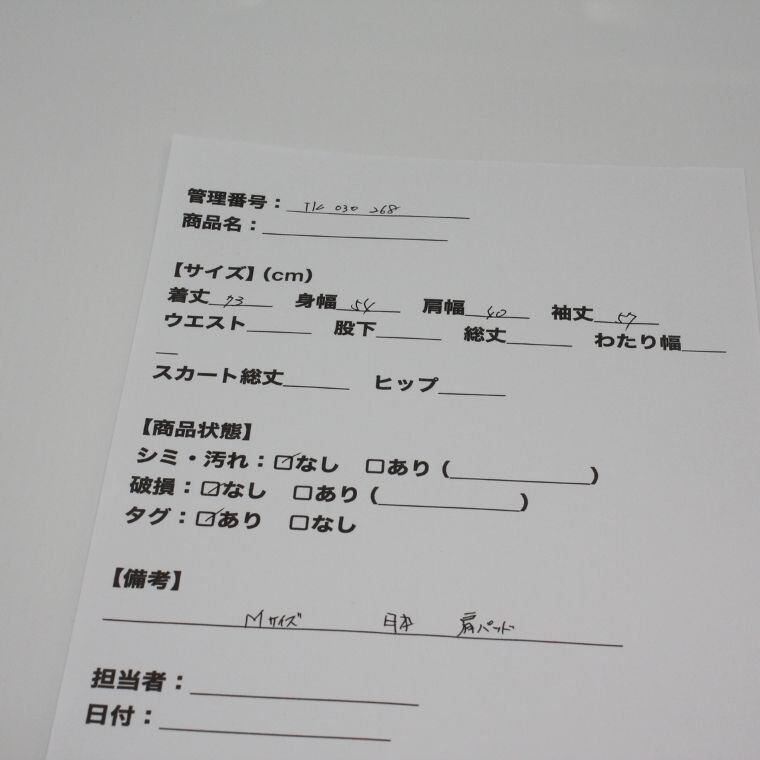 管理番号：TK 030 268
商品名：
【サイズ】(cm)
着丈 73 身幅 54 肩幅 40 袖丈 57
ウエスト 股下 総丈 わたり幅
スカート総丈 ヒップ
【商品状態】
シミ・汚れ：☑なし □あり（ ）
破損：☑なし □あり（ ）
タグ：☑あり □なし
【備考】
Mサイズ 日本 肩パッド
担当者：
日付：